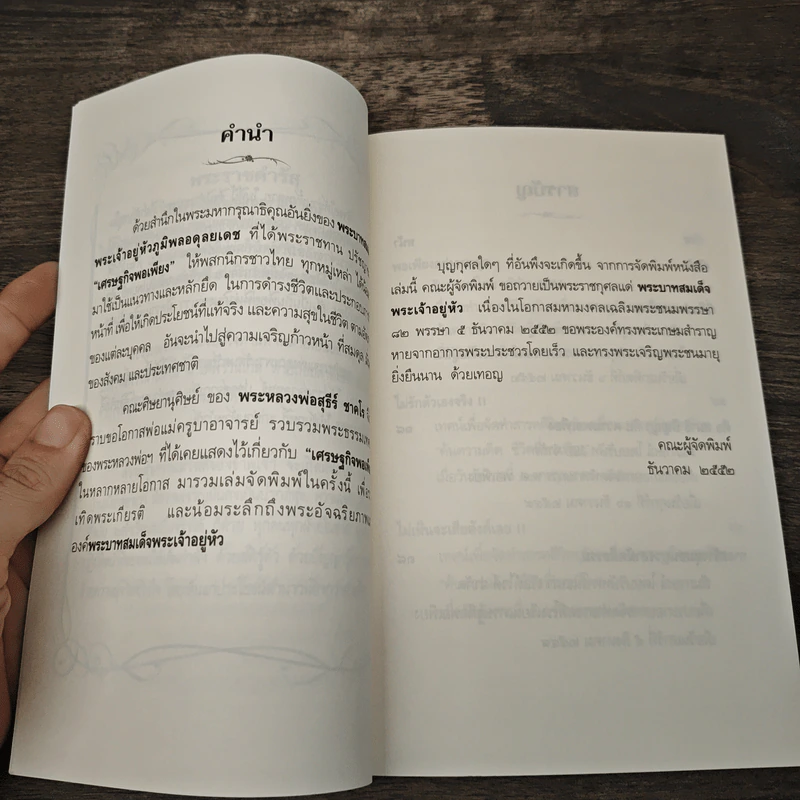 คำนำ
ด้วยสำนึกในพระมหากรุณาธิคุณอันยิ่งของ
พระเจ้าอยู่หัวภูมิพลอดุลยเดช ที่ได้พระราชทาน
"เศรษฐกิจพอเพียง" ให้พสกนิกรชาวไทย ทุกหมู่เหล่า
มาใช้เป็นแนวทางและหลักยึด ในการดำรงชีวิตและ
หน้าที่ เพื่อให้เกิดประโยชน์ที่แท้จริง และความสุขในชีวิต
ของแต่ละบุคคล อันจะนำไปสู่ความเจริญก้าวหน้า ที่สมดุล
ของสังคม และประเทศชาติ
คณะศิษยานุศิษย์ ของ พระหลวงพ่อสุธีร์ ชาคโร
ราบขอโอกาสพ่อแม่ครูบาอาจารย์ รวบรวมพระธรรม
ของพระหลวงพ่อฯ ที่ได้เคยแสดงไว้เกี่ยวกับ
ในหลากหลายโอกาส มารวมเล่มจัดพิมพ์ในครั้งนี้
เทิดพระเกียรติ และน้อมระลึกถึงพระอัจฉริยภาพ
องค์พระบาทสมเด็จพระเจ้าอยู่หัว
บุญกุศลใดๆ ที่อันพึงจะเกิดขึ้น จากการจัดพิมพ์หนังสือ
เล่มนี้ คณะผู้จัดพิมพ์ ขอถวายเป็นพระราชกุศลแด่ พระบาทสมเด็จ
พระเจ้าอยู่หัว เนื่องในโอกาสมหามงคลเฉลิมพระชนมพรรษา
๘๒ พรรษา ๕ ธันวาคม ๒๕๕๒ ขอพระองค์ทรงพระเกษมสำราญ
หายจากอาการพระประชวรโดยเร็ว และทรงพระเจริญพระชนมายุ
ยิ่งยืนนาน ด้วยเทอญ
คณะผู้จัดพิมพ์
ธันวาคม ๒๕๕๒